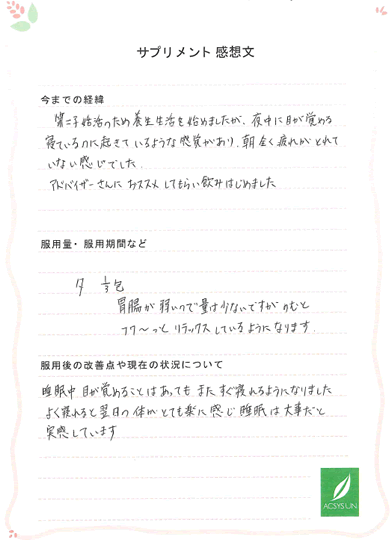 サプリメント 感想文
今までの経緯
第二子妊活のため養生生活を始めましたが、夜中に目が覚める
寝ているのに起きているような感覚があり、朝全く疲れがとれて
いない感じでした。
アドバイザーさんにおススメしてもらい飲みはじめました
服用量・服用期間など
夕 1/3包
胃腸が弱いので量は少ないですがのむと
フワ〜っとリラックスしているようになります。
服用後の改善点や現在の状況について
睡眠中目が覚めることはあってもまたすぐ寝れるようになりました
よく寝れると翌日の体がとても楽に感じ睡眠は大事だと
実感しています
ACSYS LIN